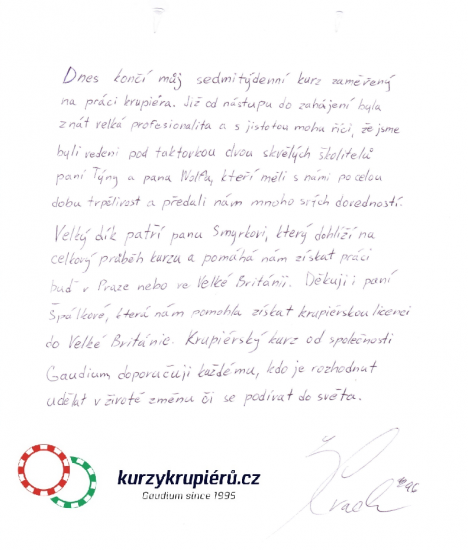 Dnes končí můj sedmitýdenní kurz zaměřený
na práci krupiéra. Již od nástupu do zahájení byla
znát velká profesionalita a s jistotou mohu říci, že jsme
byli vedeni pod taktovkou dvou skvělých školitelů
paní Týny a pana Wolfa, kteří měli s námi po celou
dobu trpělivost a předali nám mnoho svých dovedností.
Velký dík patří panu Smyrkovi, který dohlíží na
celkový průběh kurzu a pomáhá nám získat práci
buď v Praze nebo ve Velké Británii. Děkuji i paní
Špálkové, která nám pomohla získat krupiérskou licenci
do Velké Británie. Krupiérský kurz od společnosti
Gaudium doporučuji každému, kdo je rozhodnut
udělat v životě změnu či se podívat do světa.
kurzykrupiérů.cz
Gaudium since 1995